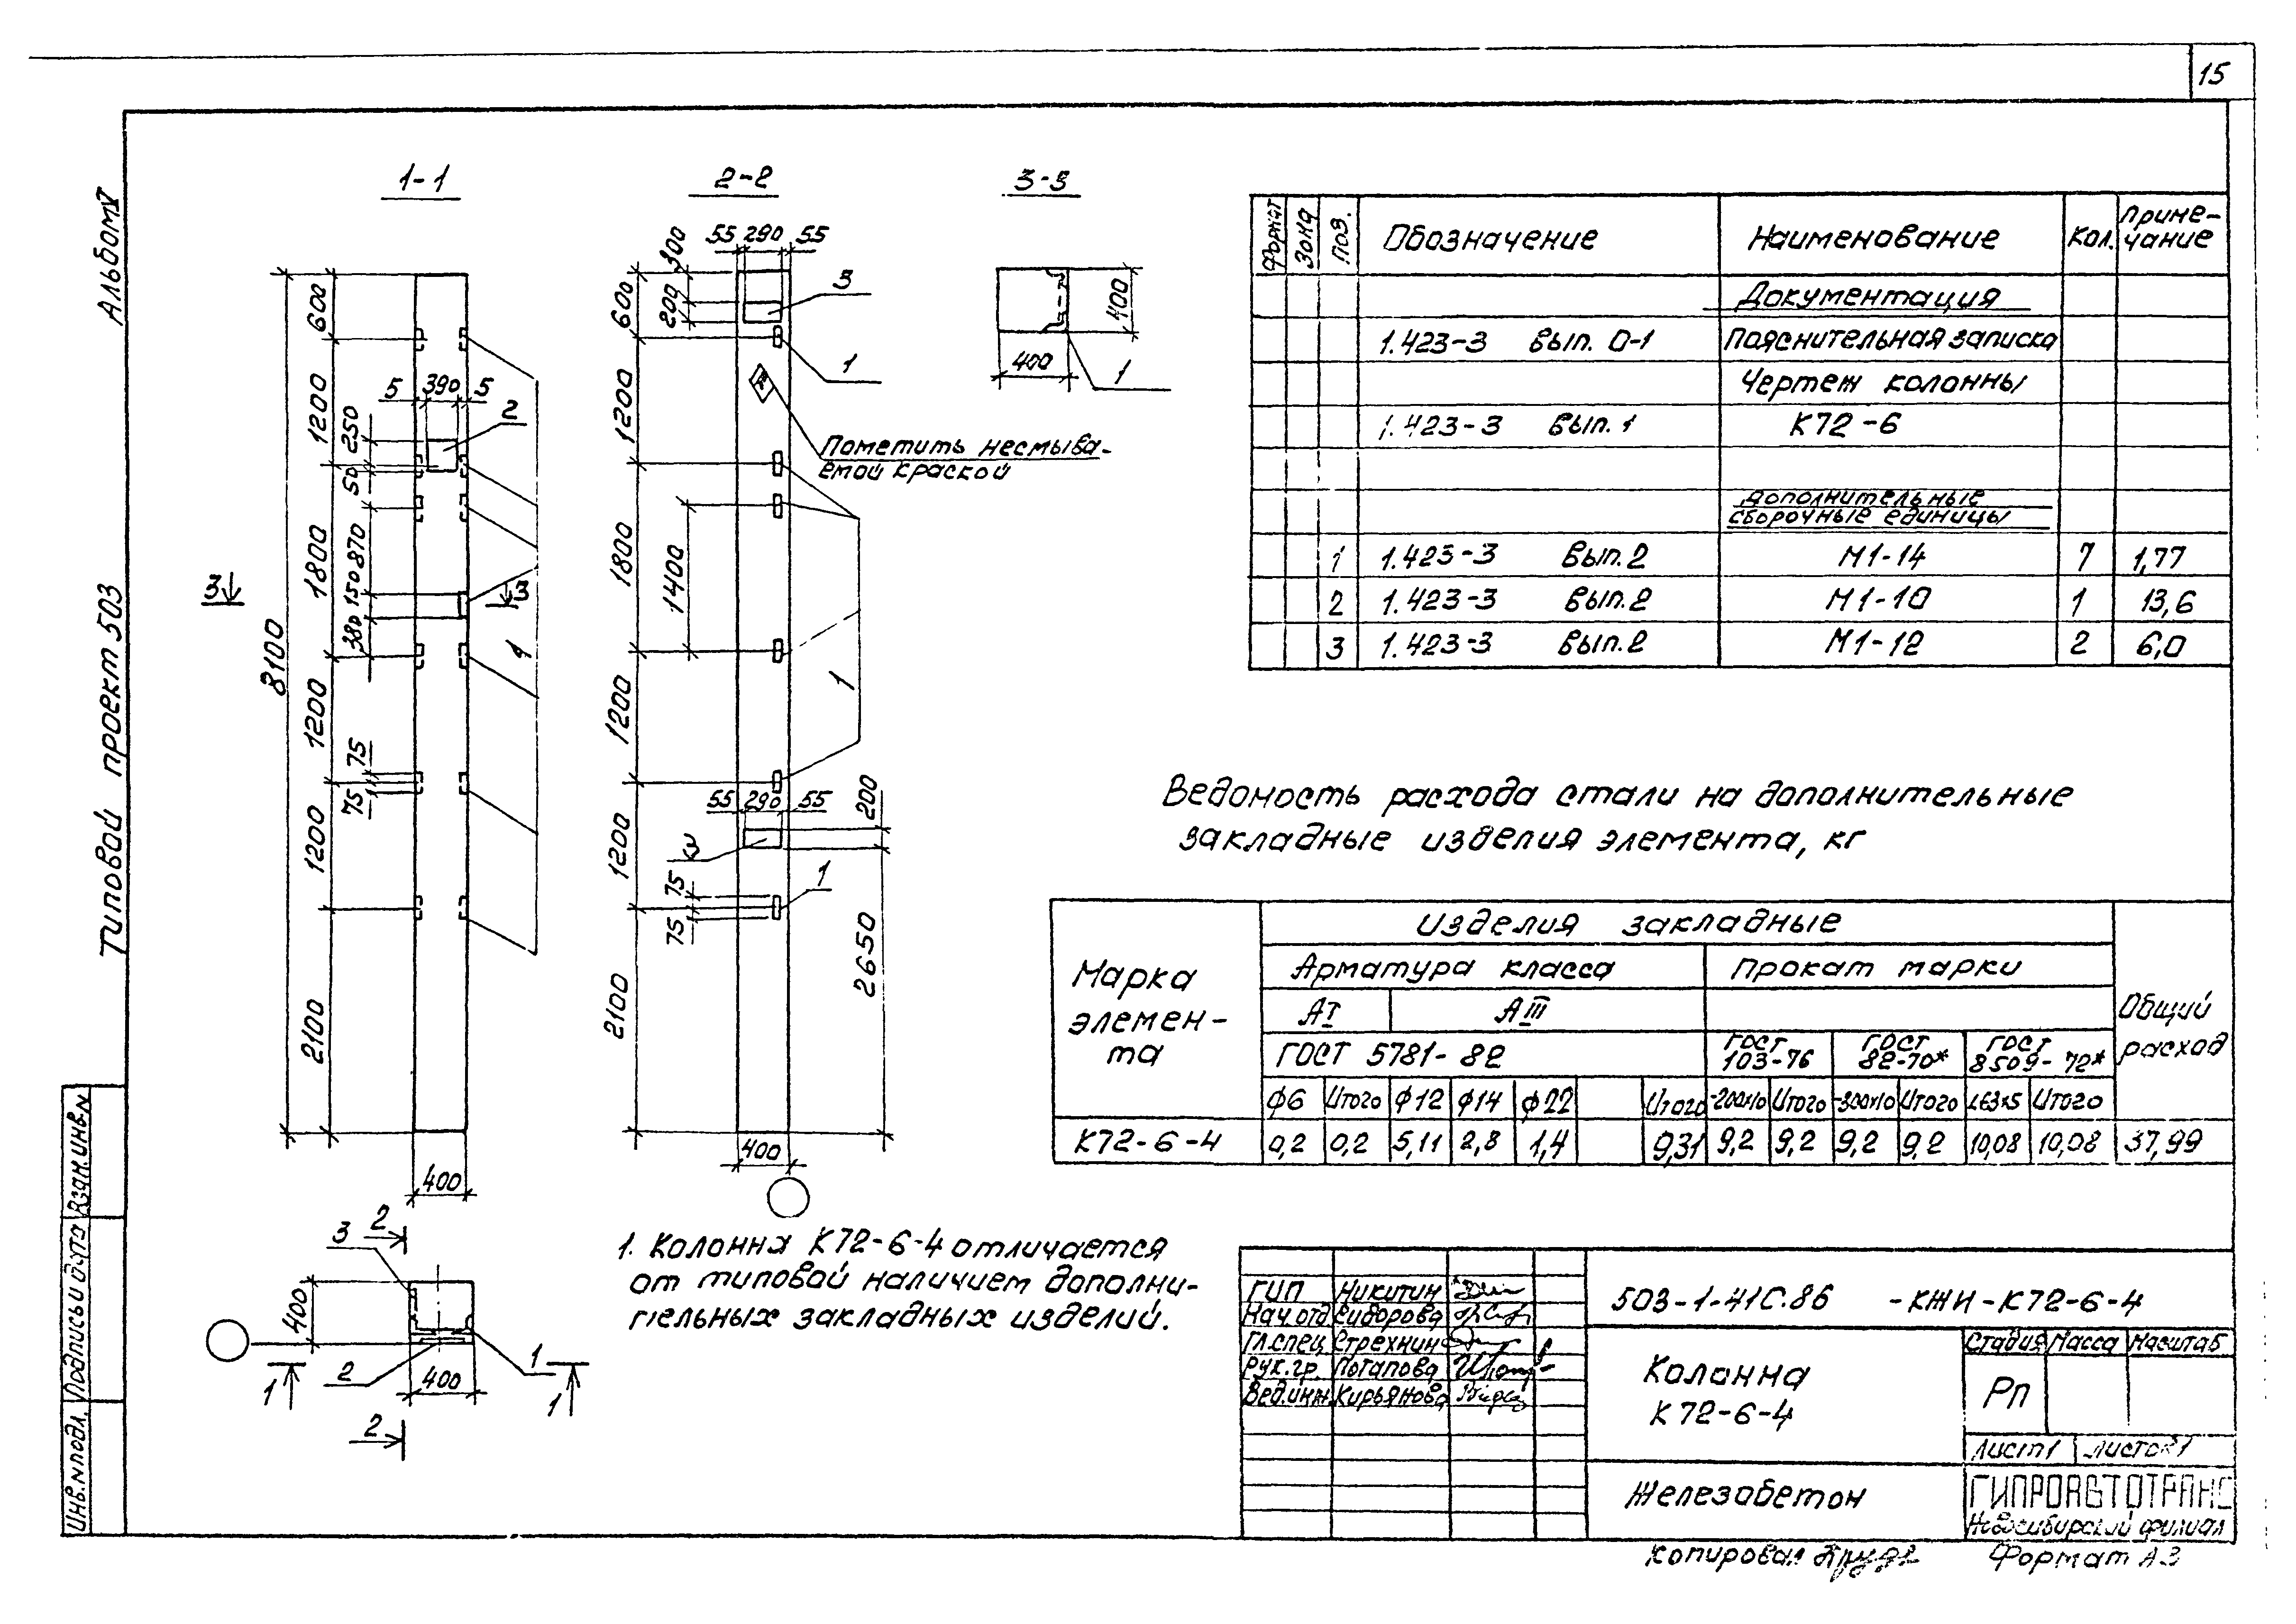 15
Альбом V
Типовой проект 503
Инв.N подл. Подпись и дата Взам.инв.N
1-1
8100
600
1200
1800
1200
1200
2100
250
50
870
150
380
75
75
5 390 5
2
3 3
1
400
2-2
55 290 55
300
200
600
1200
1800
1200
1200
2100
1400
3
1
Пометить несмыва-
емой краской
1
55 290 55
200
3
1
75
75
2650
400
3-3
400
400
1
3
2
400
400
1
2
1
1
2
1. Колонна К72-6-4 отличается
от типовой наличием дополни-
тельных закладных изделий.
Формат Зона Поз. Обозначение Наименование Кол. Приме-
чание
Документация
1.423-3 Вып. 0-1 Пояснительная записка
Чертеж колонны
1.423-3 Вып. 1 К72-6
Дополнительные
сборочные единицы
1 1.423-3 Вып.2 М1-14 7 1,77
2 1.423-3 Вып.2 М1-10 1 13,6
3 1.423-3 Вып.2 М1-12 2 6,0
Ведомость расхода стали на дополнительные
закладные изделия элемента, кг
Марка
элемен-
та
Изделия закладные
Общий
расход
Арматура класса Прокат марки
АI АIII
ГОСТ 5781-82 ГОСТ 103-76 ГОСТ 82-70* ГОСТ 8509-72*
ф6 Итого ф12 ф14 ф22 Итого -200х10 Итого -300х10 Итого L63х5 Итого
К72-6-4 0,2 0,2 5,11 2,8 1,4 9,31 9,2 9,2 9,2 9,2 10,08 10,08 37,99
ГИП Никитин
Нач.отд. Сидорова
Гл.спец. Стрехнин
Рук.гр. Потапова
Вед.инж. Кирьянова
503-1-41С.86 -КЖИ-К72-6-4
Колонна
К72-6-4
Стадия Масса Масштаб
Рп
Лист 1 Листов 1
Железабетон
ГИПРОАВТОТРАНС
Новосибирский филиал
Копировал
Формат А3